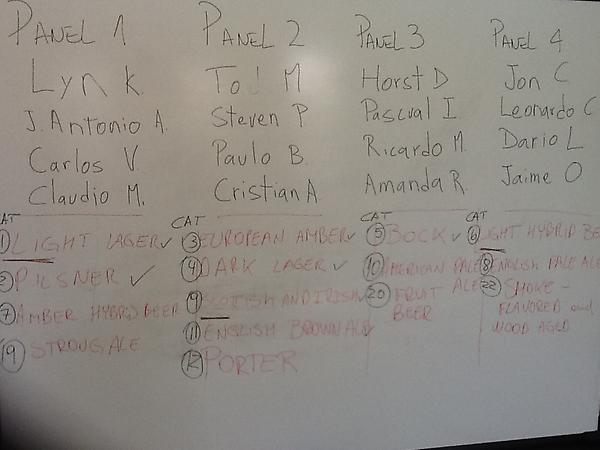 PANEL 1
Lyn K.
J. Antonio A.
Carlos V.
Claudio M.
CAT
1 LIGHT LAGER ✓
2 PILSNER ✓
7 AMBER HYBRID BEER
19 STRONG ALE
PANEL 2
M
Steven P
Paulo B.
Cristian A
CAT
3 EUROPEAN AMBER ✓
4 DARK LAGER ✓
9 SCOTTISH AND IRISH ✓
11 ENGLISH BROWN ALE ✓
12 PORTER
PANEL 3
Horst D
Pascual I
Ricardo M.
Amanda R.
CAT
5 BOCK ✓
10 AMERICAN PALE ALE
20 FRUIT
BEER
PANEL 4
Jon C
Leonardo C
Dario L
Jaime O
CAT
6 LIGHT HYBRID BE
8 ENGLISH PALE ALE
22 SMOKE -
FLAVORED and
WOOD AGED